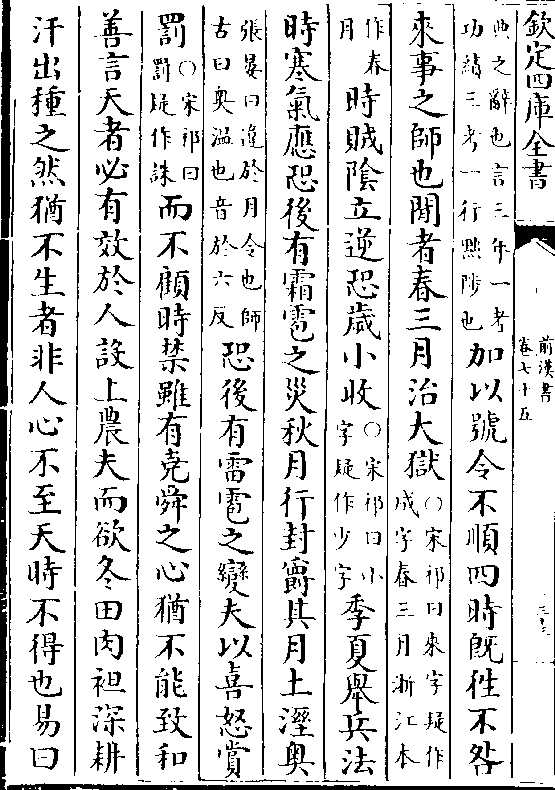 欽定四庫全書
前漢書
卷七十五
典之辭也言三年一考
功績三考一行黜陟也
加以號令不順四時既徃不咎
來事之師也閒者春三月治大獄
○宋祁曰來字疑作
成字春三月浙江本
作春
月
時賊陰立逆恐歲小收
○宋祁曰小
字疑作少字
季夏舉兵法
時寒氣應恐後有霜雹之災秋月行封爵其月土溼奥
張晏曰違於月令也師
古曰奥温也音於六反
恐後有雷雹之變夫以喜怒賞
罰
○宋祁曰
罰疑作誅
而不顧時禁雖有堯舜之心猶不能致和
善言天者必有效於人設上農夫而欲冬田肉袒深耕
汗出種之然猶不生者非人心不至天時不得也易曰